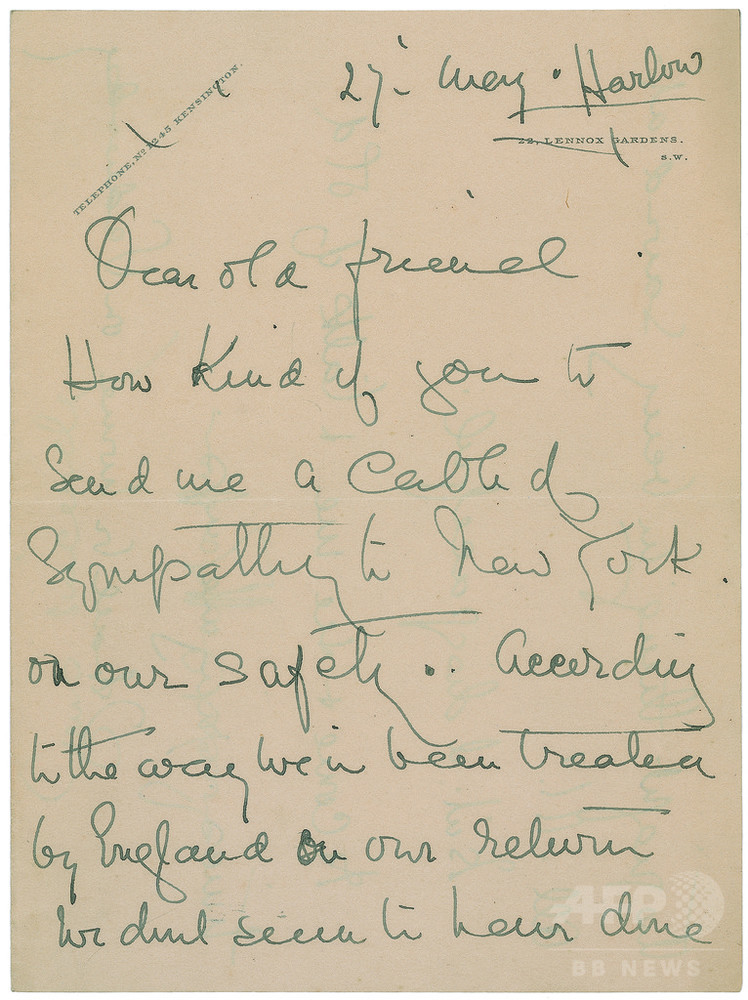 27- May. Harlow
TELEPHONE, Nº 1245 KENSINGTON.
22, LENNOX GARDENS.
S.W.
Dear old friend.
How kind of you to
send me a cable of
sympathy to New York.
on our safety.. According
to the way we've been treated
by England on our return
we didnt seem to have done
AFP
BB NEWS